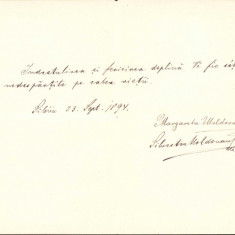 Îndestulirea și fericirea deplină Ți fie
nedespărțite pe calea vieții.
Sibiiu 23. Sept. 1894.
Margareta Moldovan
Silvestru Moldovan